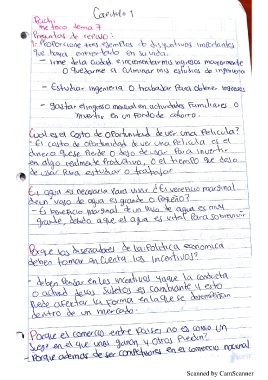 Capitulo 1
me toco tema 7
Preguntas de repaso:
1- Proporcione tres ejemplos de disyuntivas importantes
que haya enfrentado en su vida.
- Irme de la ciudad e incrementar mis ingresos mayormente
O Quedarme a culminar mis estudios de ingeniería
- Estudiar ingenieria o trabajar Para obtener ingresos
- gastar el ingreso mensual en actividades Familiares o
Invertir en un Fondo de ahorro.
Cual es el costo de oportunidad de ver una Pelicula?
- El costo de oportunidad de ver una Pelicula es el
dinero que se Pierde o dejo de usar Para Invertir
en algo realmente Productivo, o el tiempo que dejo
de usar Para estudiar o trabajar
El agua es necesaria Para vivir ¿El beneficio marginal
de un vaso de agua es grande o Pequeño?
- El beneficio marginal de un vaso de agua es muy
grande, debido a que el agua es vital Para sobrevivir
Porque los diseñadores de la Politica economica
deben tomar en Cuenta los incentivos?
- deben Pensar en los incentivos ya que la conducta
o actitud de los Sujetos es cambiante y esto
Puede afectar la forma en la que se
dentro de un mercado.
Porque el comercio entre Paises no es como un
Juego en el que unos ganan y otros Pierden?
- Porque además de ser competidores en el comercio
Scanned by CamScanner